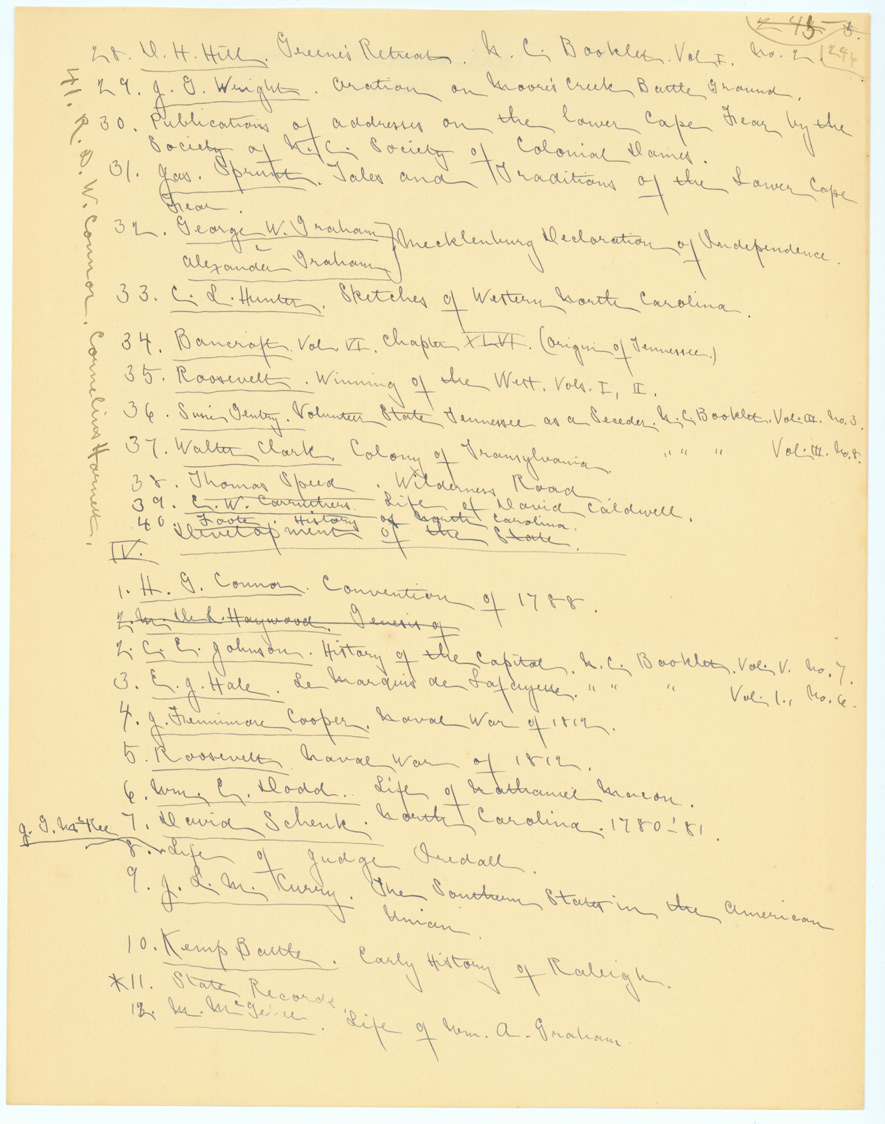 28. D. H. Hill. Greene's Retreat. N. C. Booklet. Vol I. No. 2.
29. J. G. Wright. Oration on Moore's Creek Battle Ground.
30. Publications of addresses on the lower Cape Fear by the
Society of N. C. Society of Colonial Dames.
31. Jas. Sprunt. Tales and Traditions of the Lower Cape
Fear.
32. George W. Graham } Mecklenburg Declaration of Independence.
Alexander Graham
33. C. L. Hunter. Sketches of Western North Carolina.
34. Bancroft. Vol VI. Chapter XLVI. (Origin of Tennessee.)
35. Roosevelt. Winning of the West. Vols. I, II.
36. Susie Gentry. Volunteer State Tennessee as a Seceder. N. C. Booklet. Vol. III. No. 3.
37. Walter Clark. Colony of Transylvania. " " " Vol. III. No. 8.
38. Thomas Speed. Wilderness Road
39. E. W. Carruthers. Life of David Caldwell.
40. Foote. History of North Carolina.
41. R. D. W. Connor. Cornelius Harnett.
IV. Development of the State.
1. H. G. Connor. Convention of 1788.
2. M. DeL. Haywood. Genesis of
2. C. E. Johnson. History of the Capitol. N. C. Booklet. Vol. V. No. 7.
3. E. J. Hale. Le Marquis de Lafayette. " " " Vol. 1., No. 6.
4. J. Fennimore Cooper. Naval War of 1812.
5. Roosevelt. Naval War of 1812.
6. Wm. E. Dodd. Life of Nathaniel Macon.
7. David Schenk. North Carolina. 1780-'81.
J. G. McRee
8. Life of Judge Iredell.
9. J. L. M. Curry. The Southern States in the American
Union.
10. Kemp Battle. Early History of Raleigh.
*11. State Records.
12. M. McGehee. Life of Wm. A. Graham